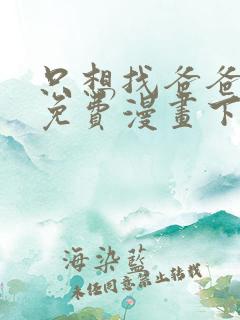 只想找爸爸
免費漫畫下
海染藍
未经同意禁止转载